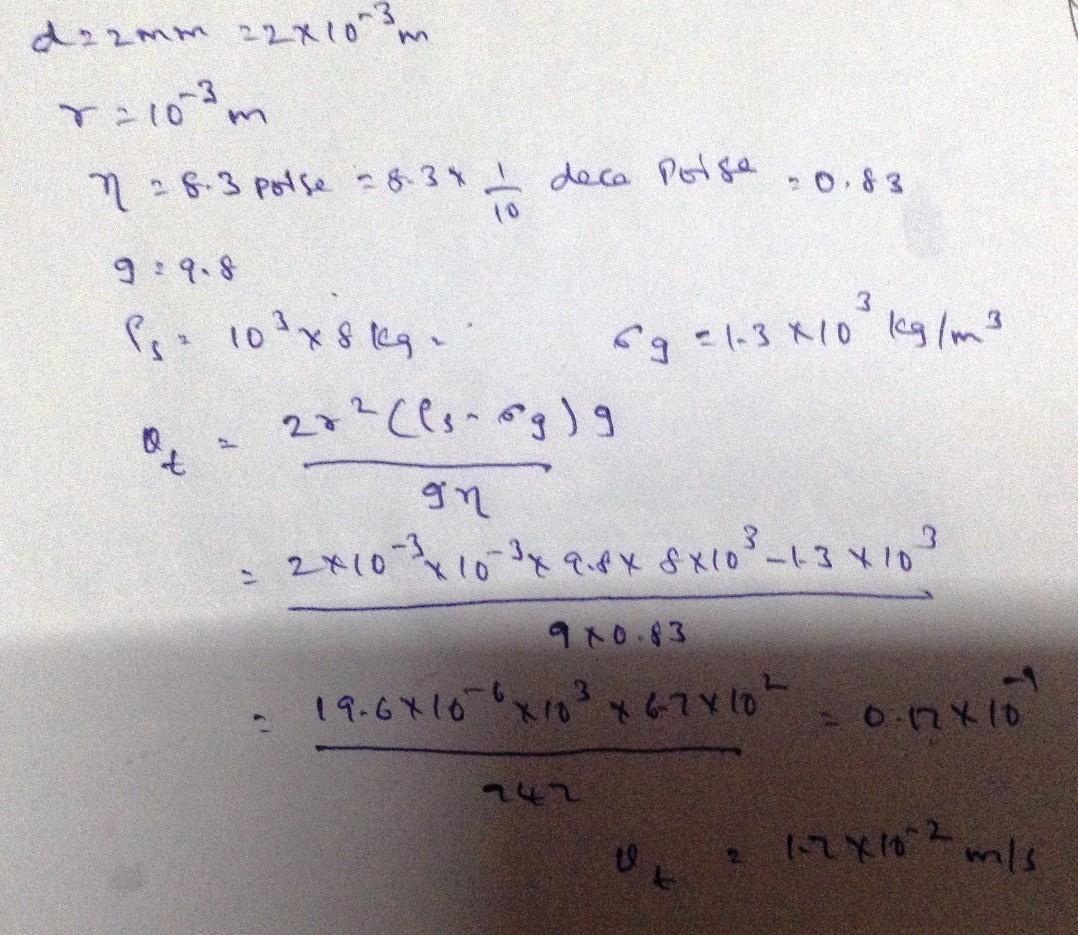 d = 2mm = 2×10⁻³m
r = 10⁻³m
η = 8.3 poise = 8.3 × 1/10 deca Poise = 0.83
g = 9.8
ρs = 10³ × 8 kg. σg = 1.3 × 10³ kg/m³
υt = 2r²(ρs - σg)g / 9η
= 2×10⁻³×10⁻³×9.8×8×10³-1.3×10³ / 9×0.83
= 19.6×10⁻⁶×10³×6.7×10² / 747 = 0.17×10⁻¹
υt = 1.7×10⁻² m/s